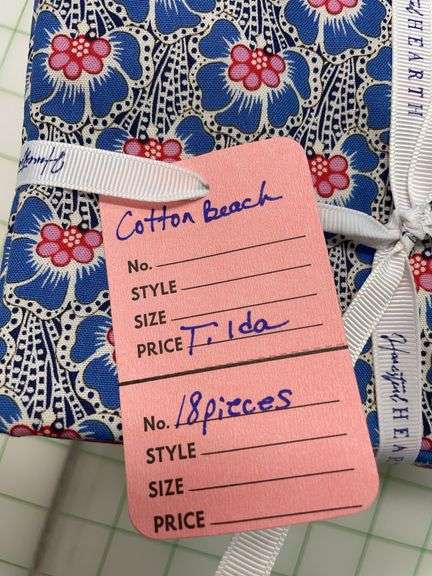 HEARTH
Homestead
Cotton Beach
No.
STYLE
SIZE
PRICE Tilda
No. 18 pieces
STYLE
SIZE
PRICE
HEAR